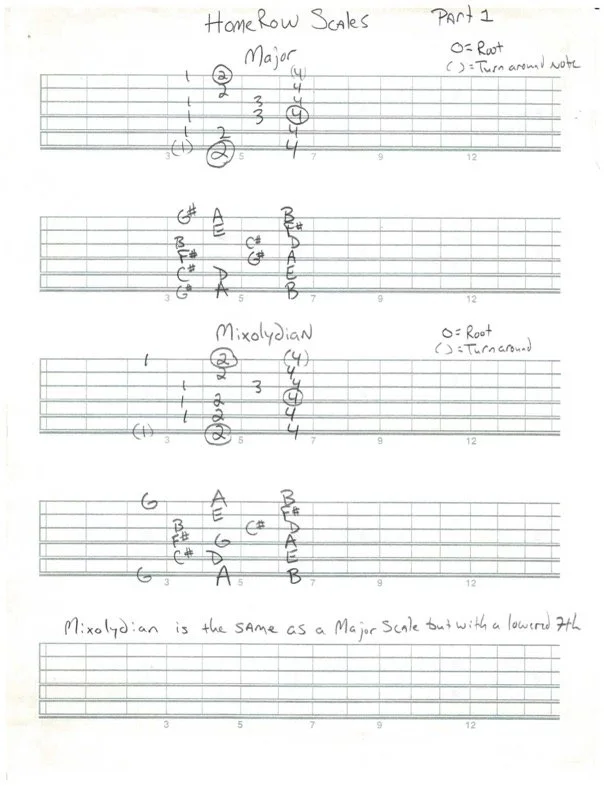 HomeRow Scales Part 1
Major O = Root
( ) = Turn around Note
1 2 (4)
2 4
1 3 4
1 3 4
1 2 4
(1) 2 4
3 5 7 9 12
G# A B
E F#
B C# D
F# G# A
C# D E
G# A B
3 5 7 9 12
Mixolydian O = Root
( ) = Turnaround
1 2 (4)
2 4
1 3 4
1 2 4
1 2 4
(1) 2 4
3 5 7 9 12
G A B
E F#
B C# D
F# G A
C# D E
G A B
3 5 7 9 12
Mixolydian is the SAME as a Major Scale but with a lowered 7th
3 5 7 9 12